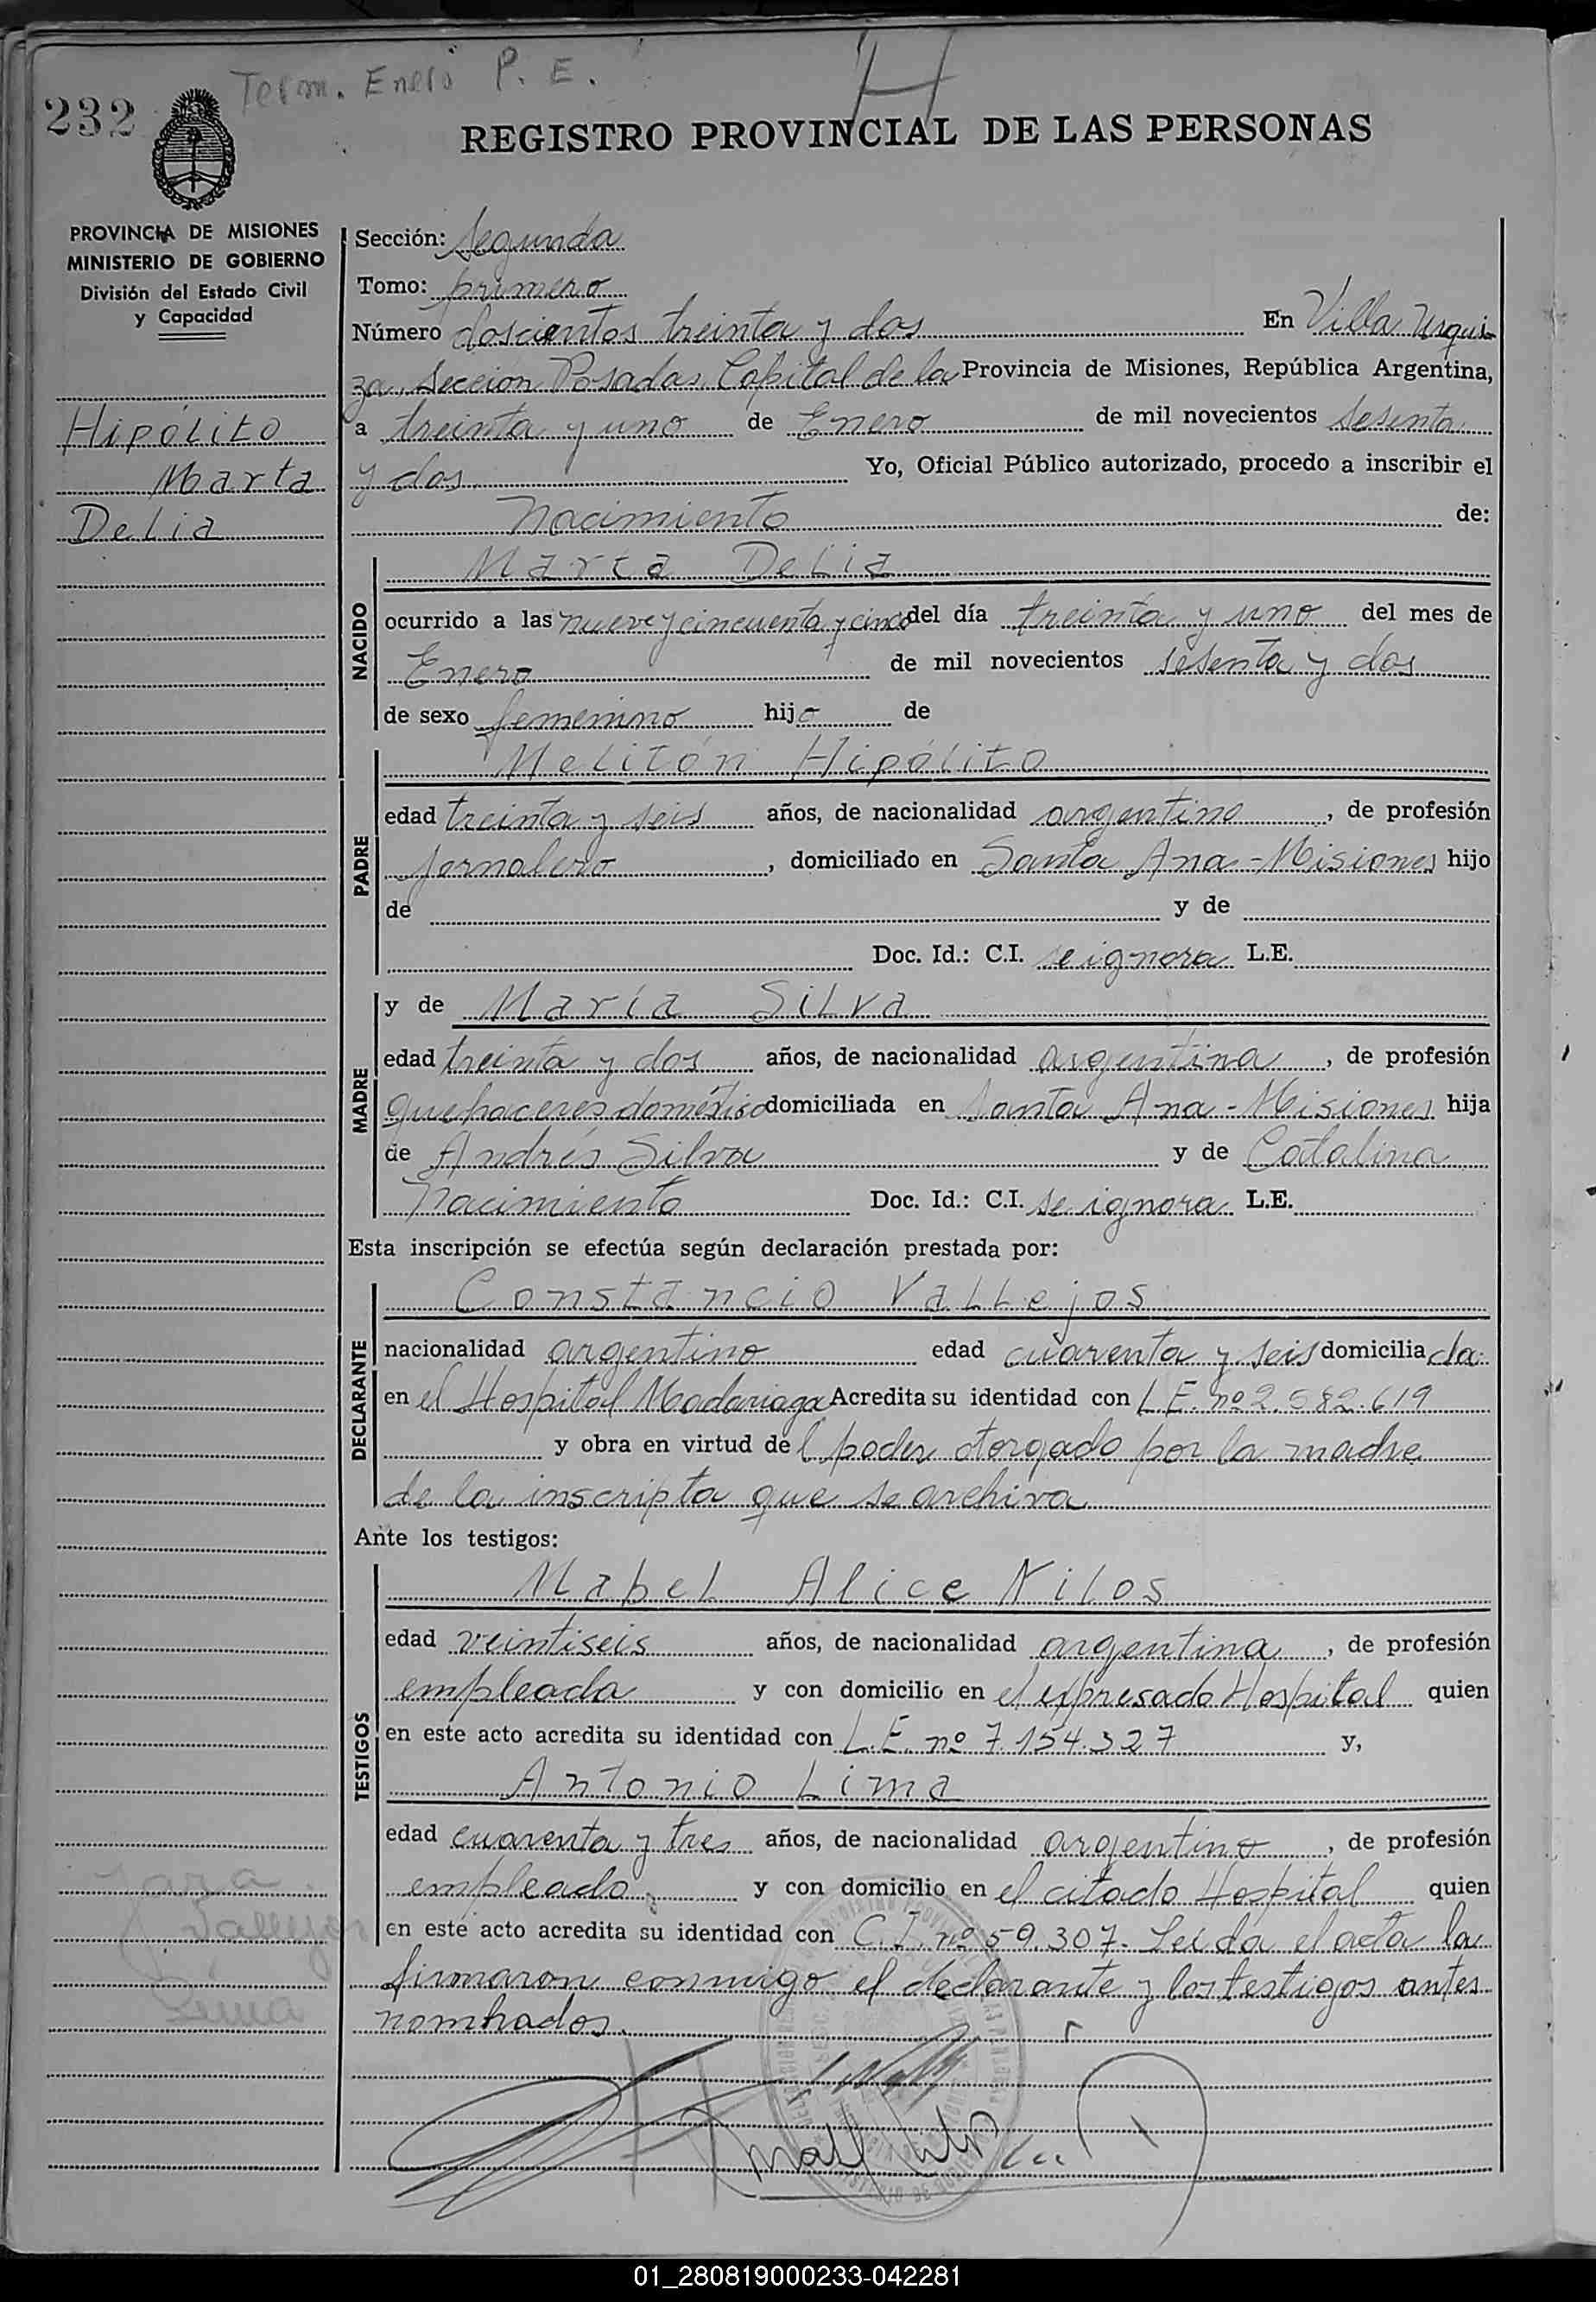 Term. Enero P. E.
H
232
REGISTRO PROVINCIAL DE LAS PERSONAS
PROVINCIA DE MISIONES
MINISTERIO DE GOBIERNO
División del Estado Civil
y Capacidad
Hipólito
Marta
Delia
Sección: Segunda
Tomo: primero
Número doscientos treinta y dos En Villa Urqui-
za, Seccion Posadas, Capital de la Provincia de Misiones, República Argentina,
a treinta y uno de Enero de mil novecientos sesenta
y dos Yo, Oficial Público autorizado, procedo a inscribir el
nacimiento de:
NACIDO
Marta Delia
ocurrido a las nueve y cincuenta y cinco del día treinta y uno del mes de
Enero de mil novecientos sesenta y dos
de sexo femenino hijo de
PADRE
Melitón Hipólito
edad treinta y seis años, de nacionalidad argentino, de profesión
jornalero, domiciliado en Santa Ana - Misiones hijo
de y de
Doc. Id.: C.I. se ignora L.E.
MADRE
y de María Silva
edad treinta y dos años, de nacionalidad argentina, de profesión
quehaceres doméstico domiciliada en Santa Ana - Misiones hija
de Andrés Silva y de Catalina
Nacimiento Doc. Id.: C.I. se ignora L.E.
Esta inscripción se efectúa según declaración prestada por:
DECLARANTE
Constancio Vallejos
nacionalidad argentino edad cuarenta y seis domicilia da
en el Hospital Madariaga Acredita su identidad con L.E. nº 2.582.619
y obra en virtud de l poder otorgado por la madre
de la inscripta que se archiva
Ante los testigos:
TESTIGOS
Mabel Alice Nilos
edad veintiseis años, de nacionalidad argentina, de profesión
empleada y con domicilio en el expresado Hospital quien
en este acto acredita su identidad con L.E. nº 7.154.327 y,
Antonio Lima
edad cuarenta y tres años, de nacionalidad argentino, de profesión
empleado y con domicilio en el citado Hospital quien
en este acto acredita su identidad con C.I. nº 59.307. Leida el acta la
firmaron conmigo el declarante y los testigos antes
nombrados.
Vallejos
Lima
01_280819000233-042281